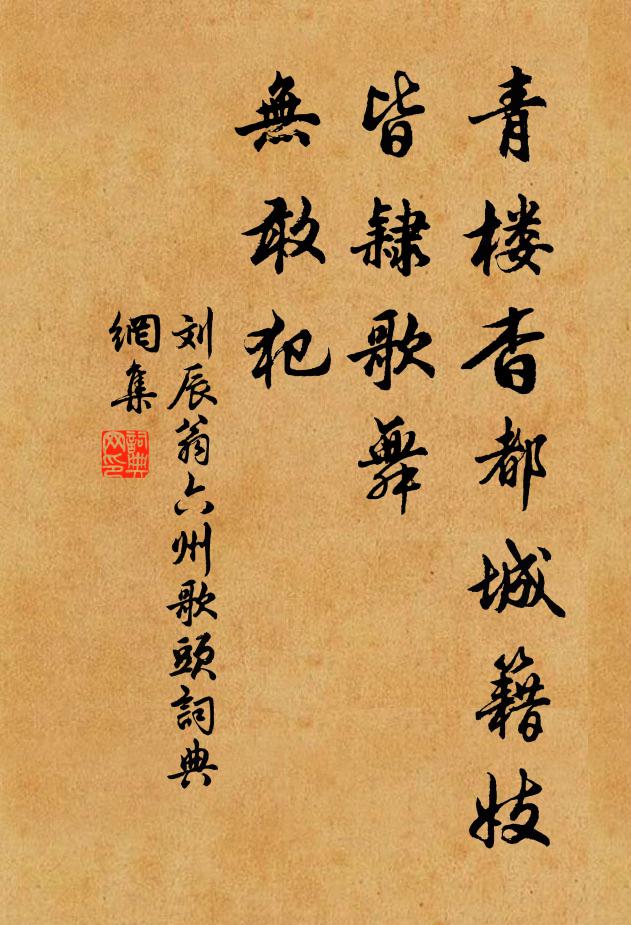 青楼杳都城籍妓
皆隸歌舞
無敢犯
刘辰翁六州歌頭詞典
網集
詞典
网印